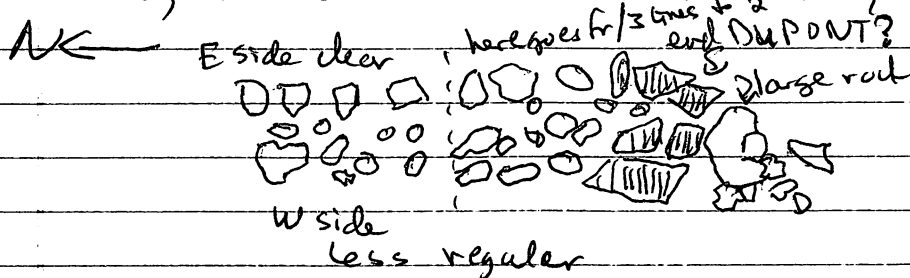 N
E side clear
here goes fr/3 lines to 2
end DUPONT?
2 large rock
W side
less regular